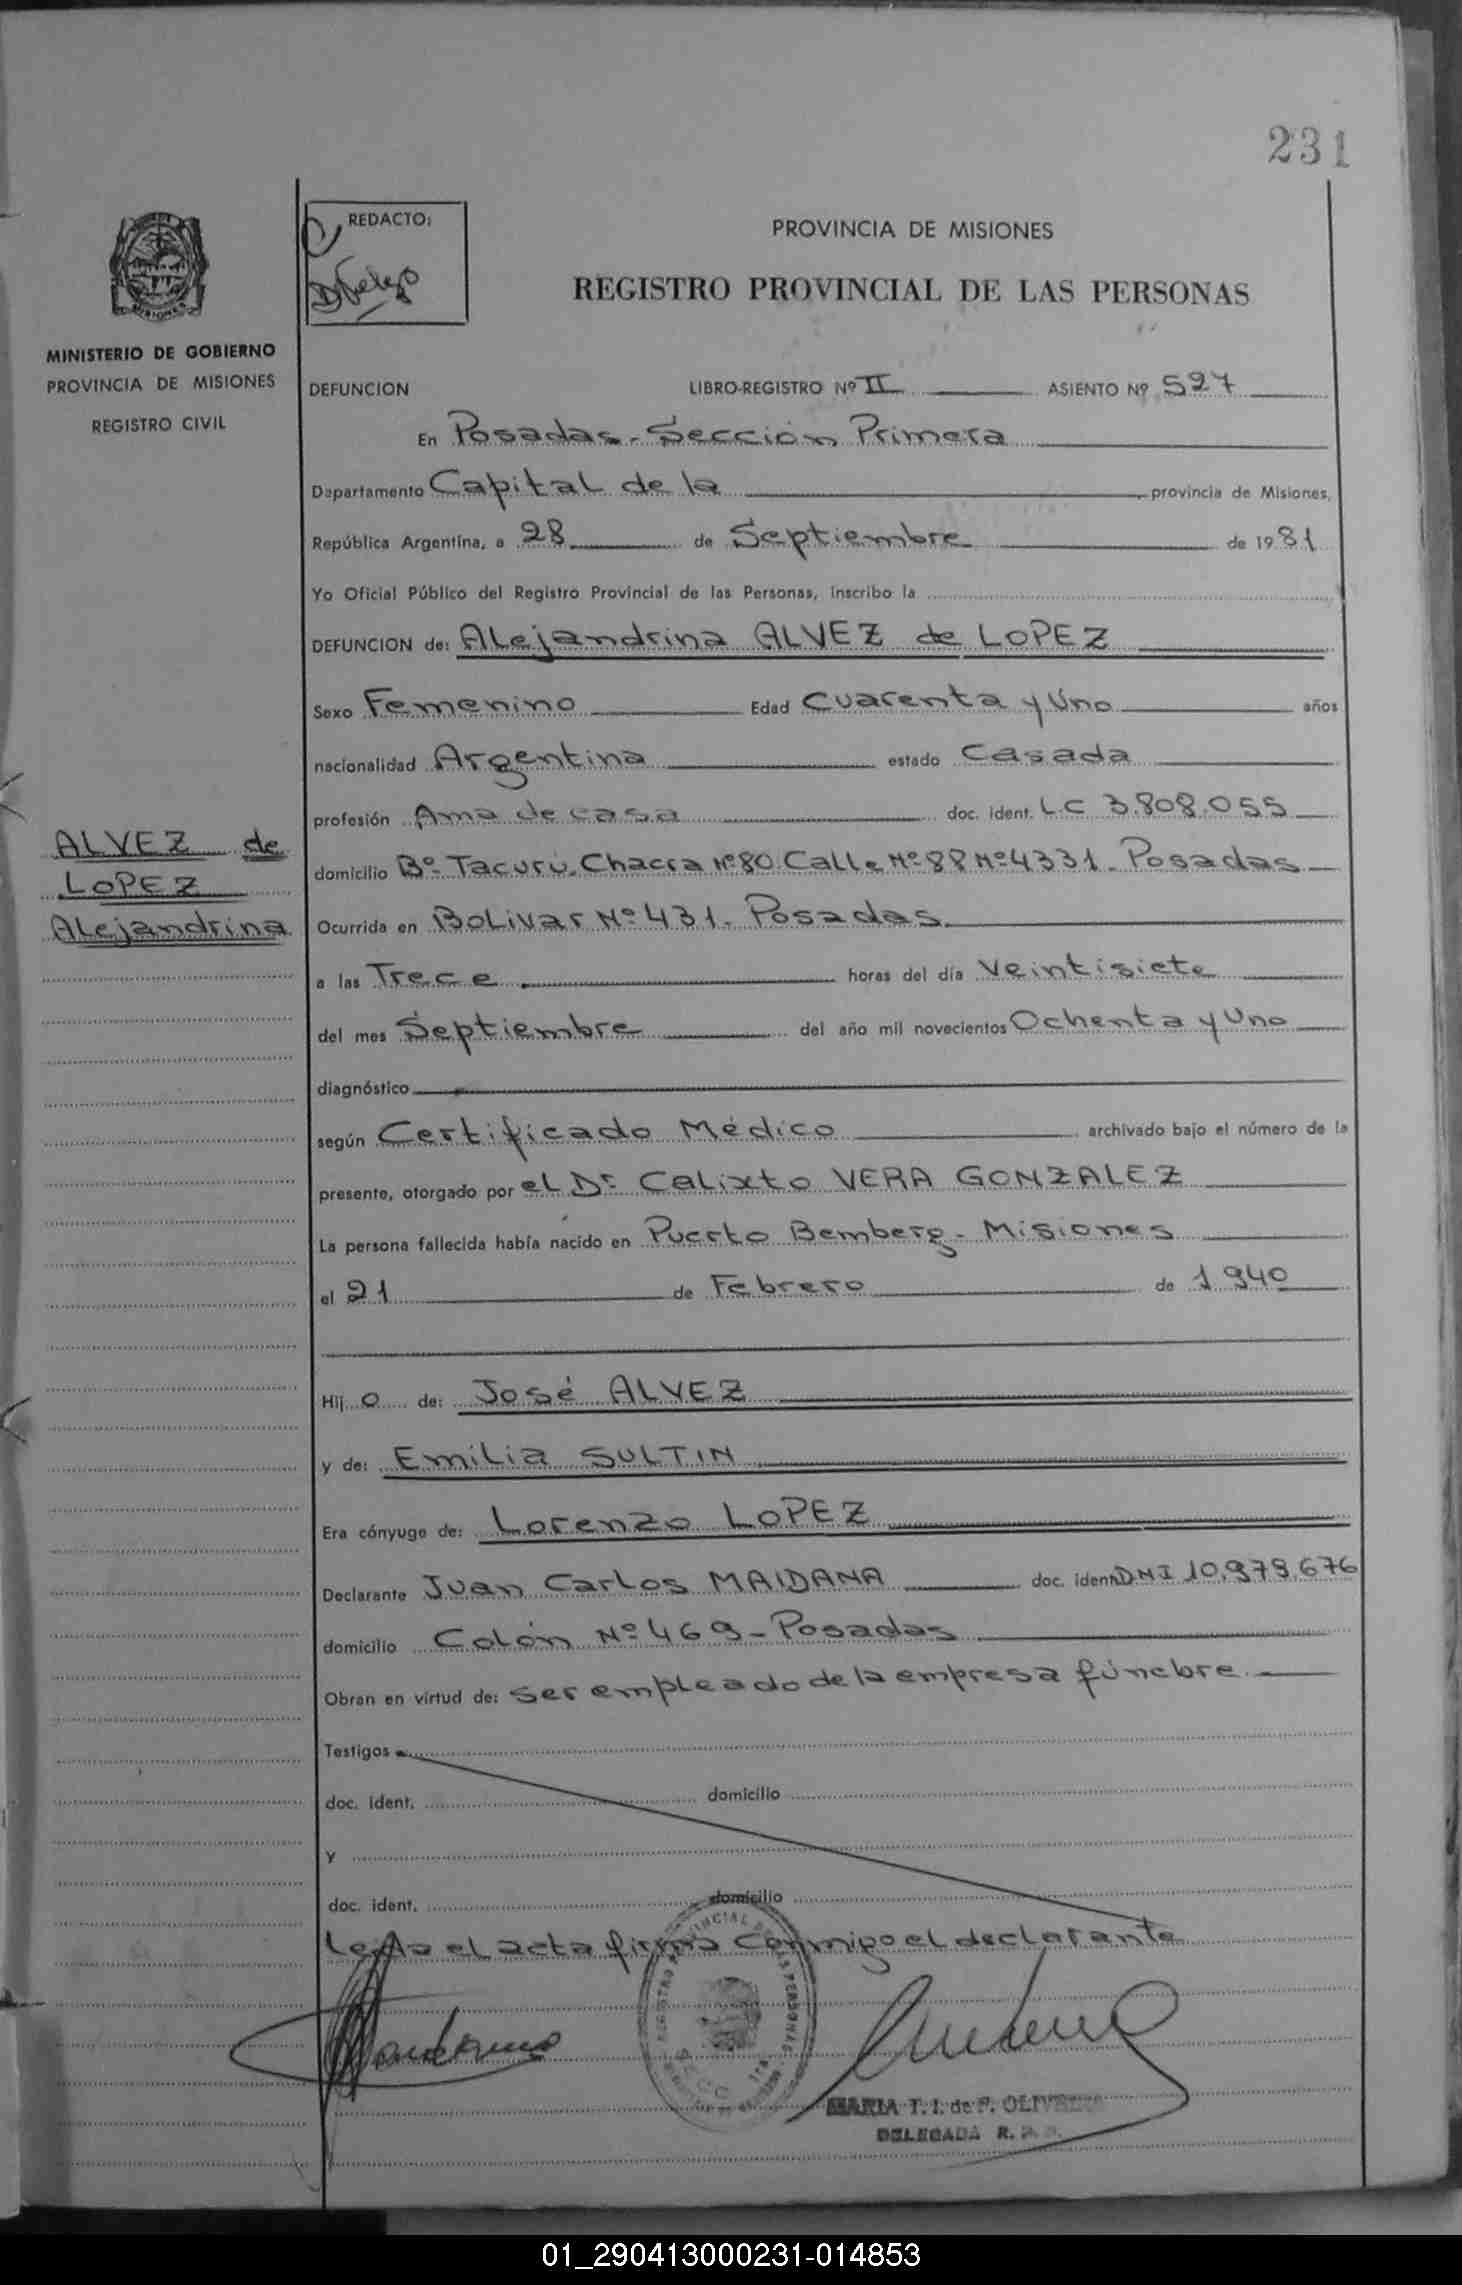 231
REDACTO:
PROVINCIA DE MISIONES
REGISTRO PROVINCIAL DE LAS PERSONAS
MISIONES
MINISTERIO DE GOBIERNO
PROVINCIA DE MISIONES
REGISTRO CIVIL
DEFUNCION LIBRO-REGISTRO Nº II ASIENTO Nº 527
En Posadas - Sección Primera
Departamento Capital de la provincia de Misiones,
República Argentina, a 28 de Septiembre de 1981
Yo Oficial Público del Registro Provincial de las Personas, inscribo la
DEFUNCION de: Alejandrina ALVEZ de LOPEZ
Sexo Femenino Edad Cuarenta y Uno años
nacionalidad Argentina estado Casada
profesión Ama de casa doc. ident. L.C 3.808.055
ALVEZ de
LOPEZ
Alejandrina
domicilio Bº Tacurú. Chacra Nº80. Calle Nº88 Nº4331. Posadas
Ocurrida en Bolivar Nº 431. Posadas
a las Trece horas del día Veintisiete
del mes Septiembre del año mil novecientos Ochenta y Uno
diagnóstico
según Certificado Médico archivado bajo el número de la
presente, otorgado por el Dr Calixto VERA GONZALEZ
La persona fallecida había nacido en Puerto Bemberg - Misiones
el 21 de Febrero de 1940
Hij o de: José ALVEZ
y de: Emilia SULTIN
Era cónyuge de: Lorenzo LOPEZ
Declarante Juan Carlos MAIDANA doc. ident. DNI 10.979.676
domicilio Colón Nº 469 - Posadas
Obran en virtud de: ser empleado de la empresa fúnebre
Testigos
doc. ident. domicilio
y
doc. ident. domicilio
Leída el acta firma conmigo el declarante
MARIA T. I. de F. OLIVEIRA
DELEGADA R. P. P.
01_290413000231-014853